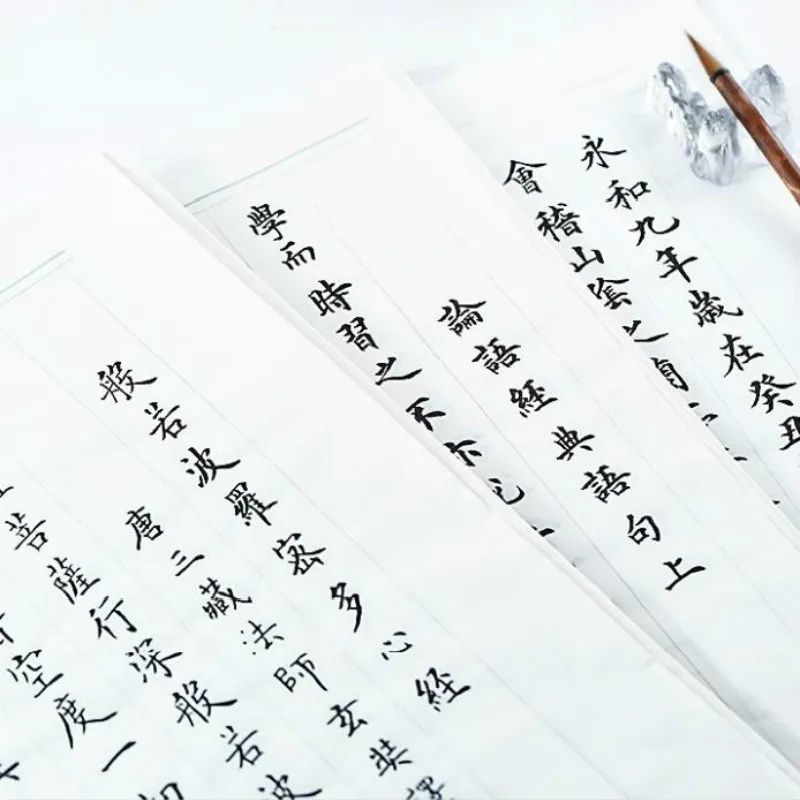 永和九年歲在癸丑
會稽山陰之
論語經典語句上
學而時習之不亦
般若波羅密多心經
唐三藏法師玄奘譯
菩薩行深般若波
空度一切